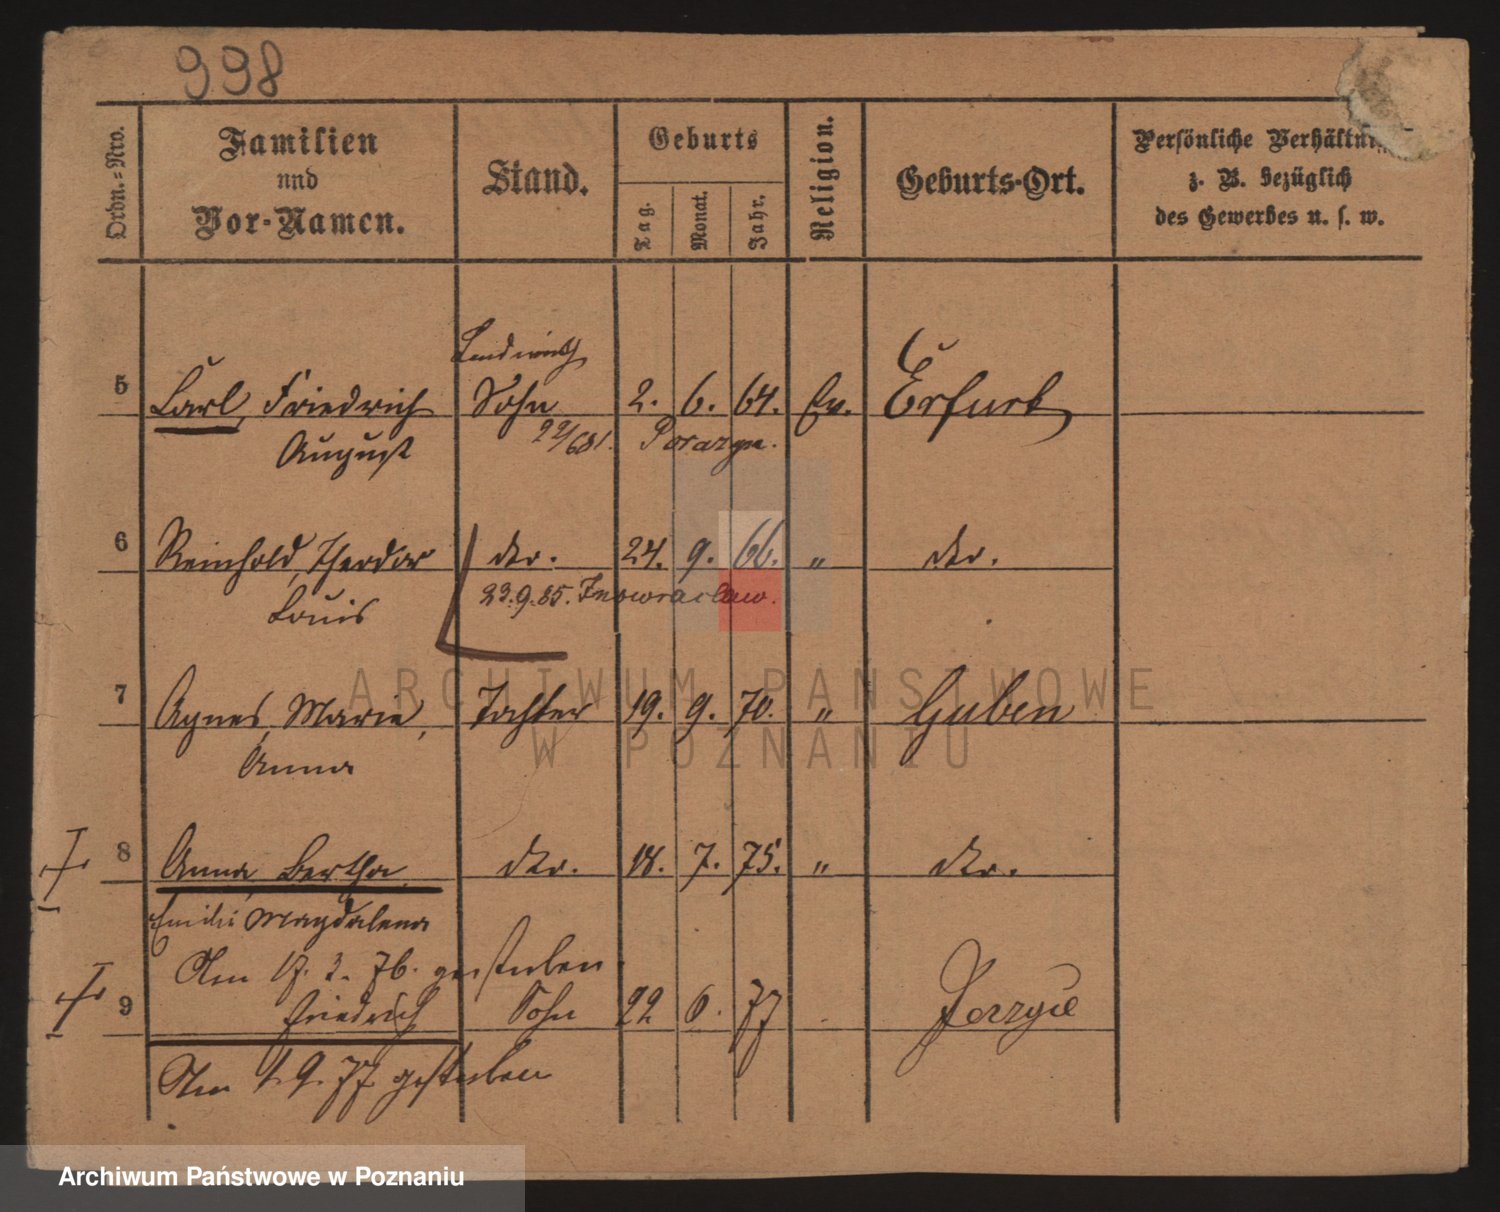 998
Ordn.-Nro.
Familien
und
Vor-Namen.
Stand.
Geburts
Tag.
Monat.
Jahr.
Religion.
Geburts-Ort.
Persönliche
z. B. bezüglich
des Gewerbes u. s. w.
Landwirth
5 Carl, Friedrich Sohn 2. 6. 64. Ev. Erfurt
August 22/6 81. Porazyn.
6 Reinhold, Theodor dto. 24. 9. 66. " dto.
Louis 23.9.85. Inowraclaw.
7 Agnes, Marie, Tochter 19. 9. 70. " Guben
Anna
8 Anna, Bertha, dto. 18. 7. 75. " dto.
Emilie Magdalena
Am 17. 3. 76. gestorben
9 Friedrich Sohn 22 6. 77 Jerzyce
Am 1. 9. 77 gestorben
ARCHIWUM PAŃSTWOWE
W POZNANIU
Archiwum Państwowe w Poznaniu